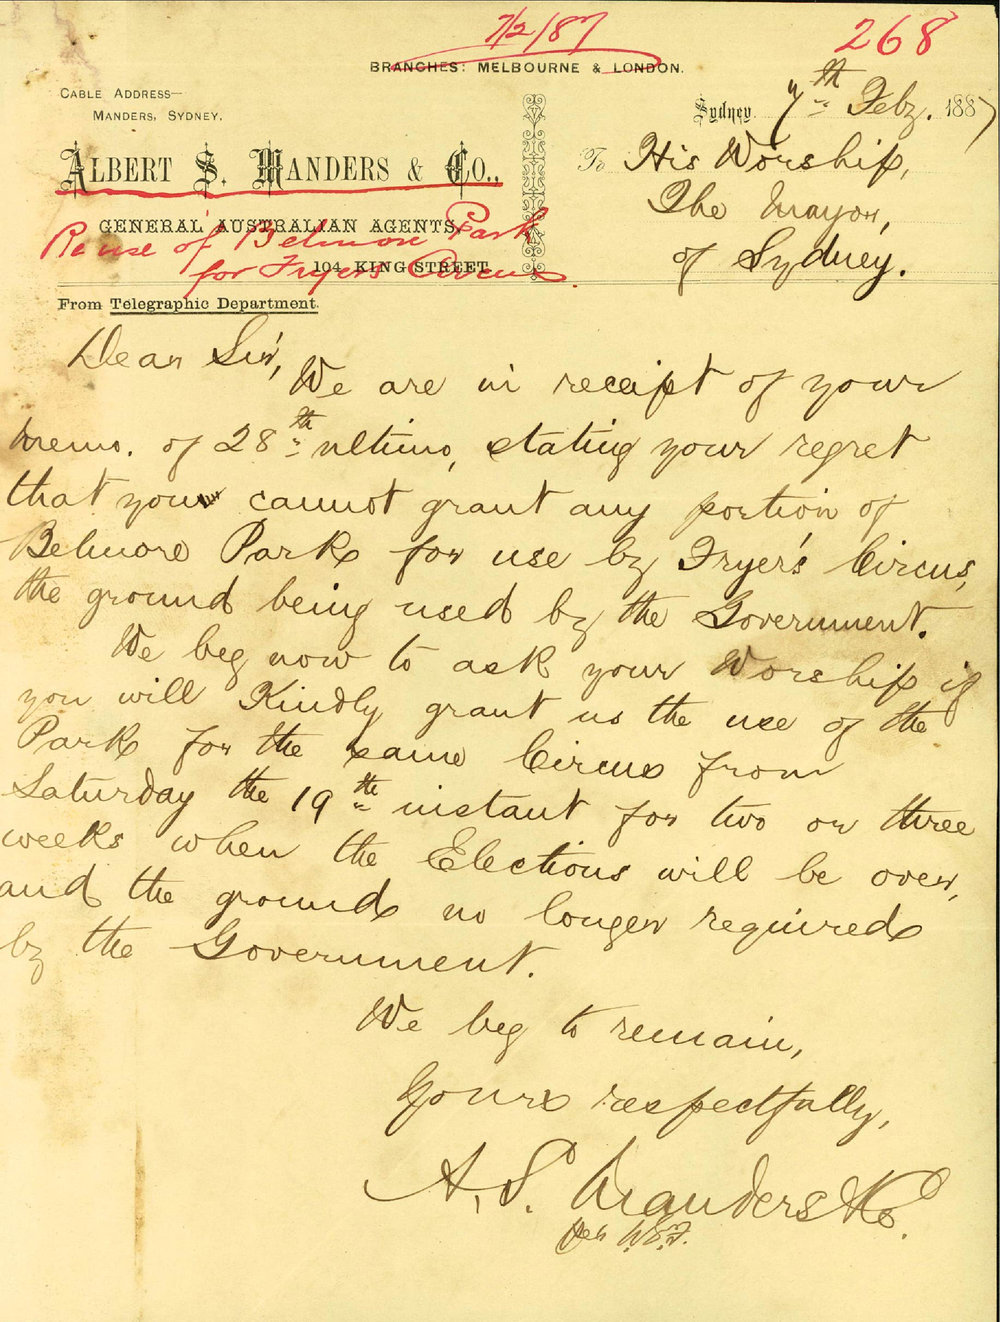 7/2/87
268
BRANCHES: MELBOURNE & LONDON.
CABLE ADDRESS—
MANDERS, SYDNEY.
Sydney 7th Feby. 1887
ALBERT S. MANDERS & CO.,
To His Worship,
The Mayor,
of Sydney.
GENERAL AUSTRALIAN AGENTS,
Re use of Belmore Park
for Fryers Circus.
104 KING STREET
From Telegraphic Department.
Dear Sir,
We are in receipt of your
memo. of 28th ultimo, stating your regret
that you cannot grant any portion of
Belmore Park for use by Fryer's Circus,
the ground being used by the Government.
We beg now to ask your Worship if
you will Kindly grant us the use of the
Park for the same Circus from
Saturday the 19th instant for two or three
weeks when the Elections will be over,
and the ground no longer required
by the Government.
We beg to remain,
Yours respectfully,
A. S. Manders & Co.